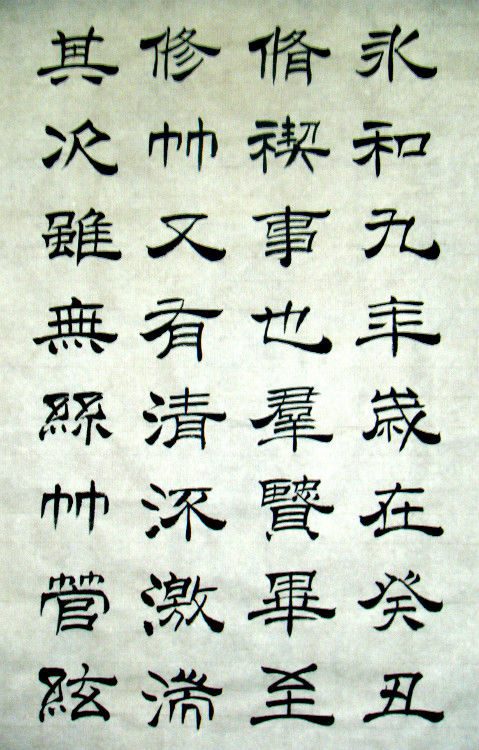 永和九年歲在癸丑
脩禊事也羣賢畢至
修竹又有清流激湍
其次雖無絲竹管絃